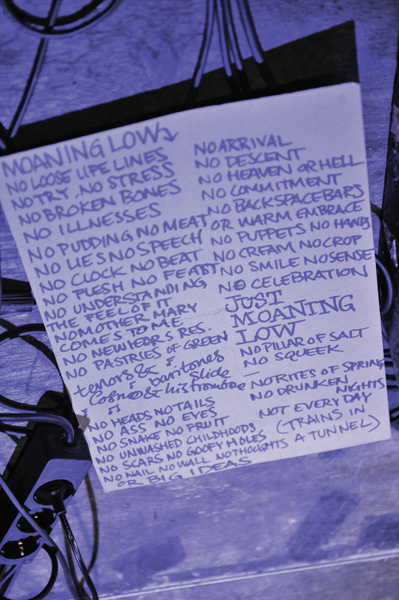 MOANING LOW
NO LOOSE LIFE LINES
NO TRY, NO STRESS
NO BROKEN BONES
NO ILLNESSES
NO PUDDING NO MEAT
NO LIES NO SPEECH
NO CLOCK NO BEAT
NO FLESH NO FEAST
NO UNDERSTANDING
THE FEEL OF IT
NO MOTHER MARY
COMES TO ME
NO NEW YEARS RES.
NO PASTRIES OF GREEN
tenors &
baritones
& slide
& his trombone
NO HEADS NO TAILS
NO ASS NO EYES
NO SNAKE NO FRUIT
NO UNWASHED CHILDHOODS
NO SCARS NO GOOFY HOLES
NO NAIL NO WALL NO THOUGHTS
OR BIG IDEAS
NO ARRIVAL
NO DESCENT
NO HEAVEN OR HELL
NO COMMITMENT
NO BACKSPACE BARS
OR WARM EMBRACE
NO PUPPETS NO HANDS
NO CREAM NO CROP
NO SMILE NO SENSE
NO CELEBRATION
JUST
MOANING
LOW
NO PILLAR OF SALT
NO SQUEEK
NO RITES OF SPRING
NO DRUNKEN NIGHTS
NOT EVERY DAY
(TRAINS IN
A TUNNEL)